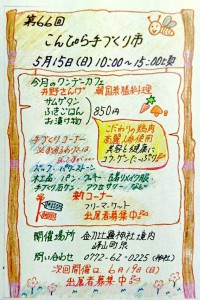 第66回
こんぴら手づくり市
5月15日(日) 10:00〜15:00頃
今月のワンデーカフェ
井野さんの 韓国薬膳料理
サムゲタン
ふきごはん
お漬物
850円
こだわりの鶏肉
美容と健康に
コラーゲンたっぷり!
手づくりコーナー
木工品・パン・クッキー・古着リメイク服
手づくり石けん・アクセサリー など
新コーナー
フリーマーケット
出店者募集中
開催場所 金刀比羅神社境内
峰山町泉
問い合わせ 0772-62-0225 (神社)
次回開催は 6月19日(日)
出店者募集中